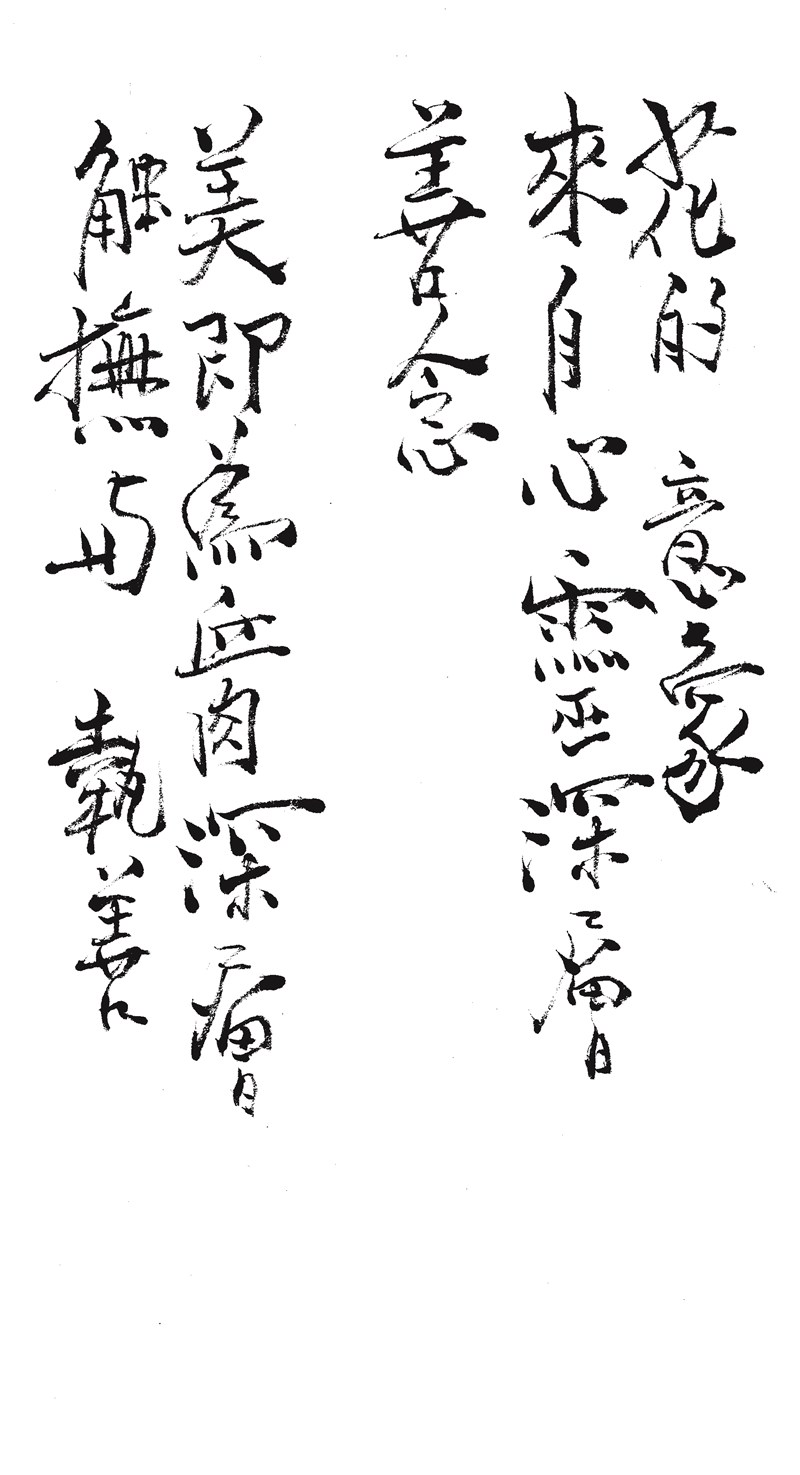 花的意象
來自心靈深層
善念
美即為血肉深層
觸撫與執善